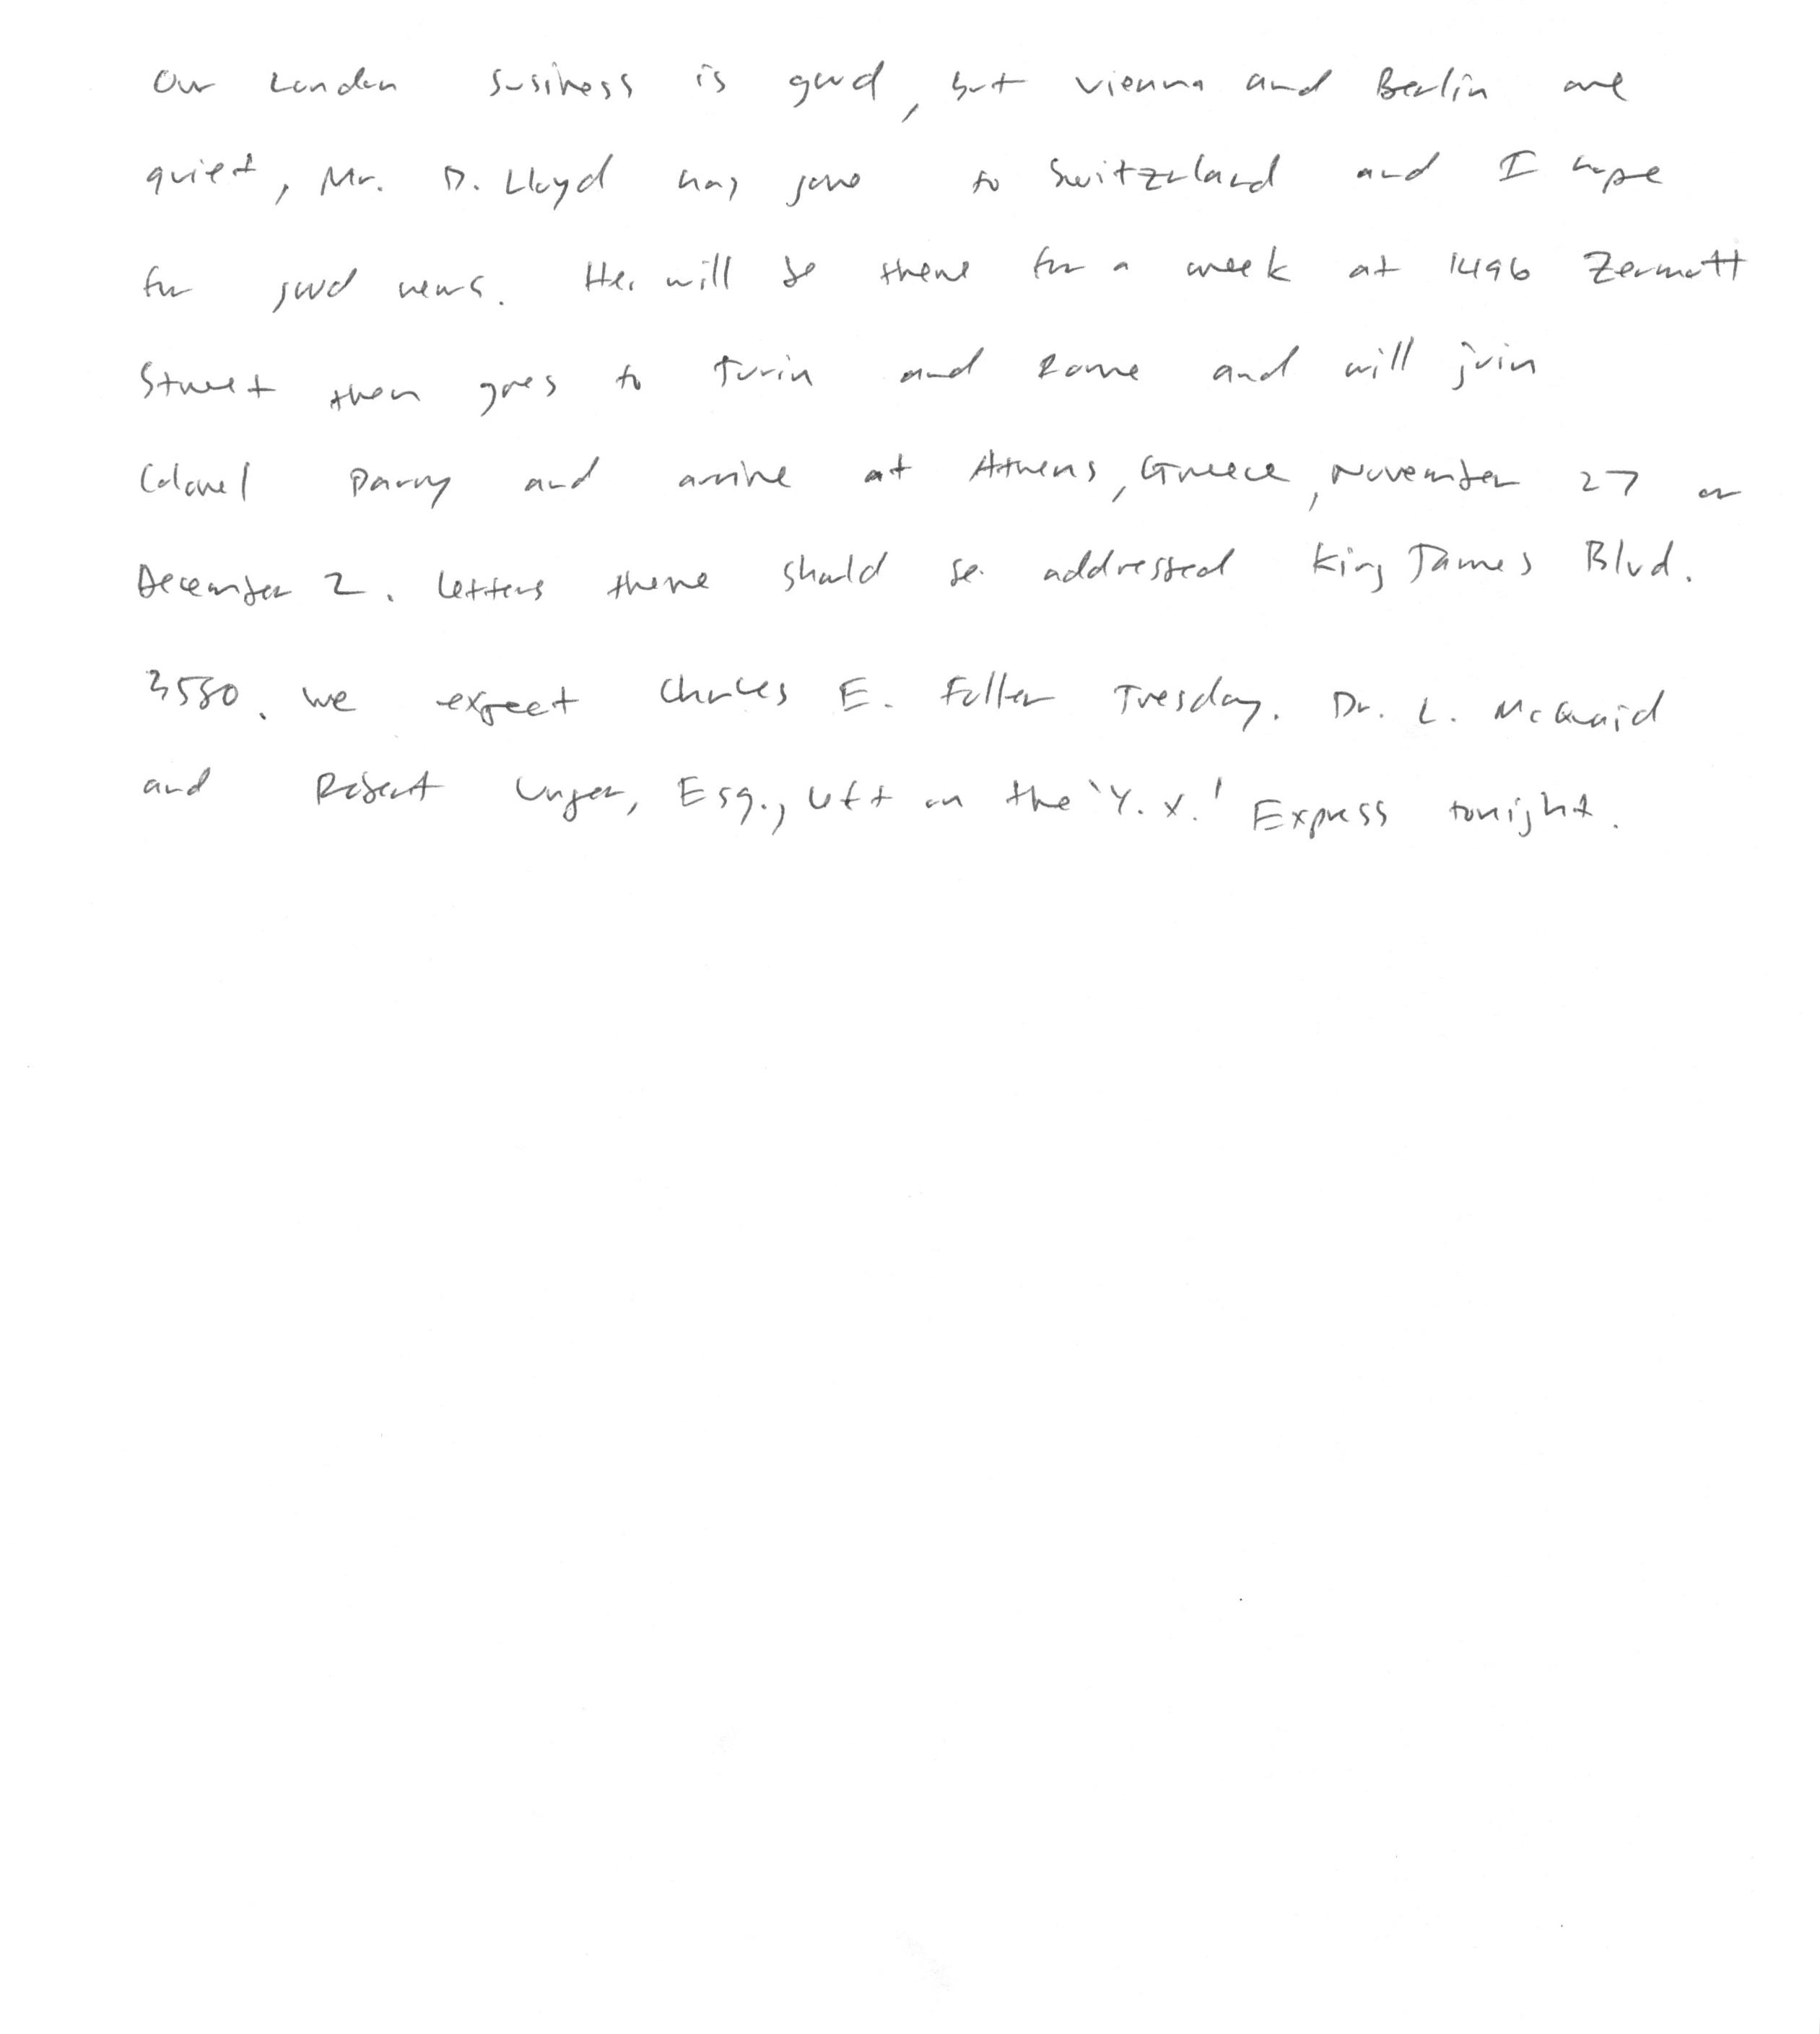 Our London business is good, but Vienna and Berlin are
quiet, Mr. D. Lloyd has gone to Switzerland and I hope
for good news. He will be there for a week at 1496 Zermott
Street then goes to Turin and Rome and will join
Colonel Parry and arrive at Athens, Greece, November 27 or
December 2. Letters there should be addressed King James Blvd.
3580. We expect Charles E. Fuller Tuesday. Dr. L. McQuaid
and Robert Unger, Esq., left on the 'Y.X.' Express tonight.